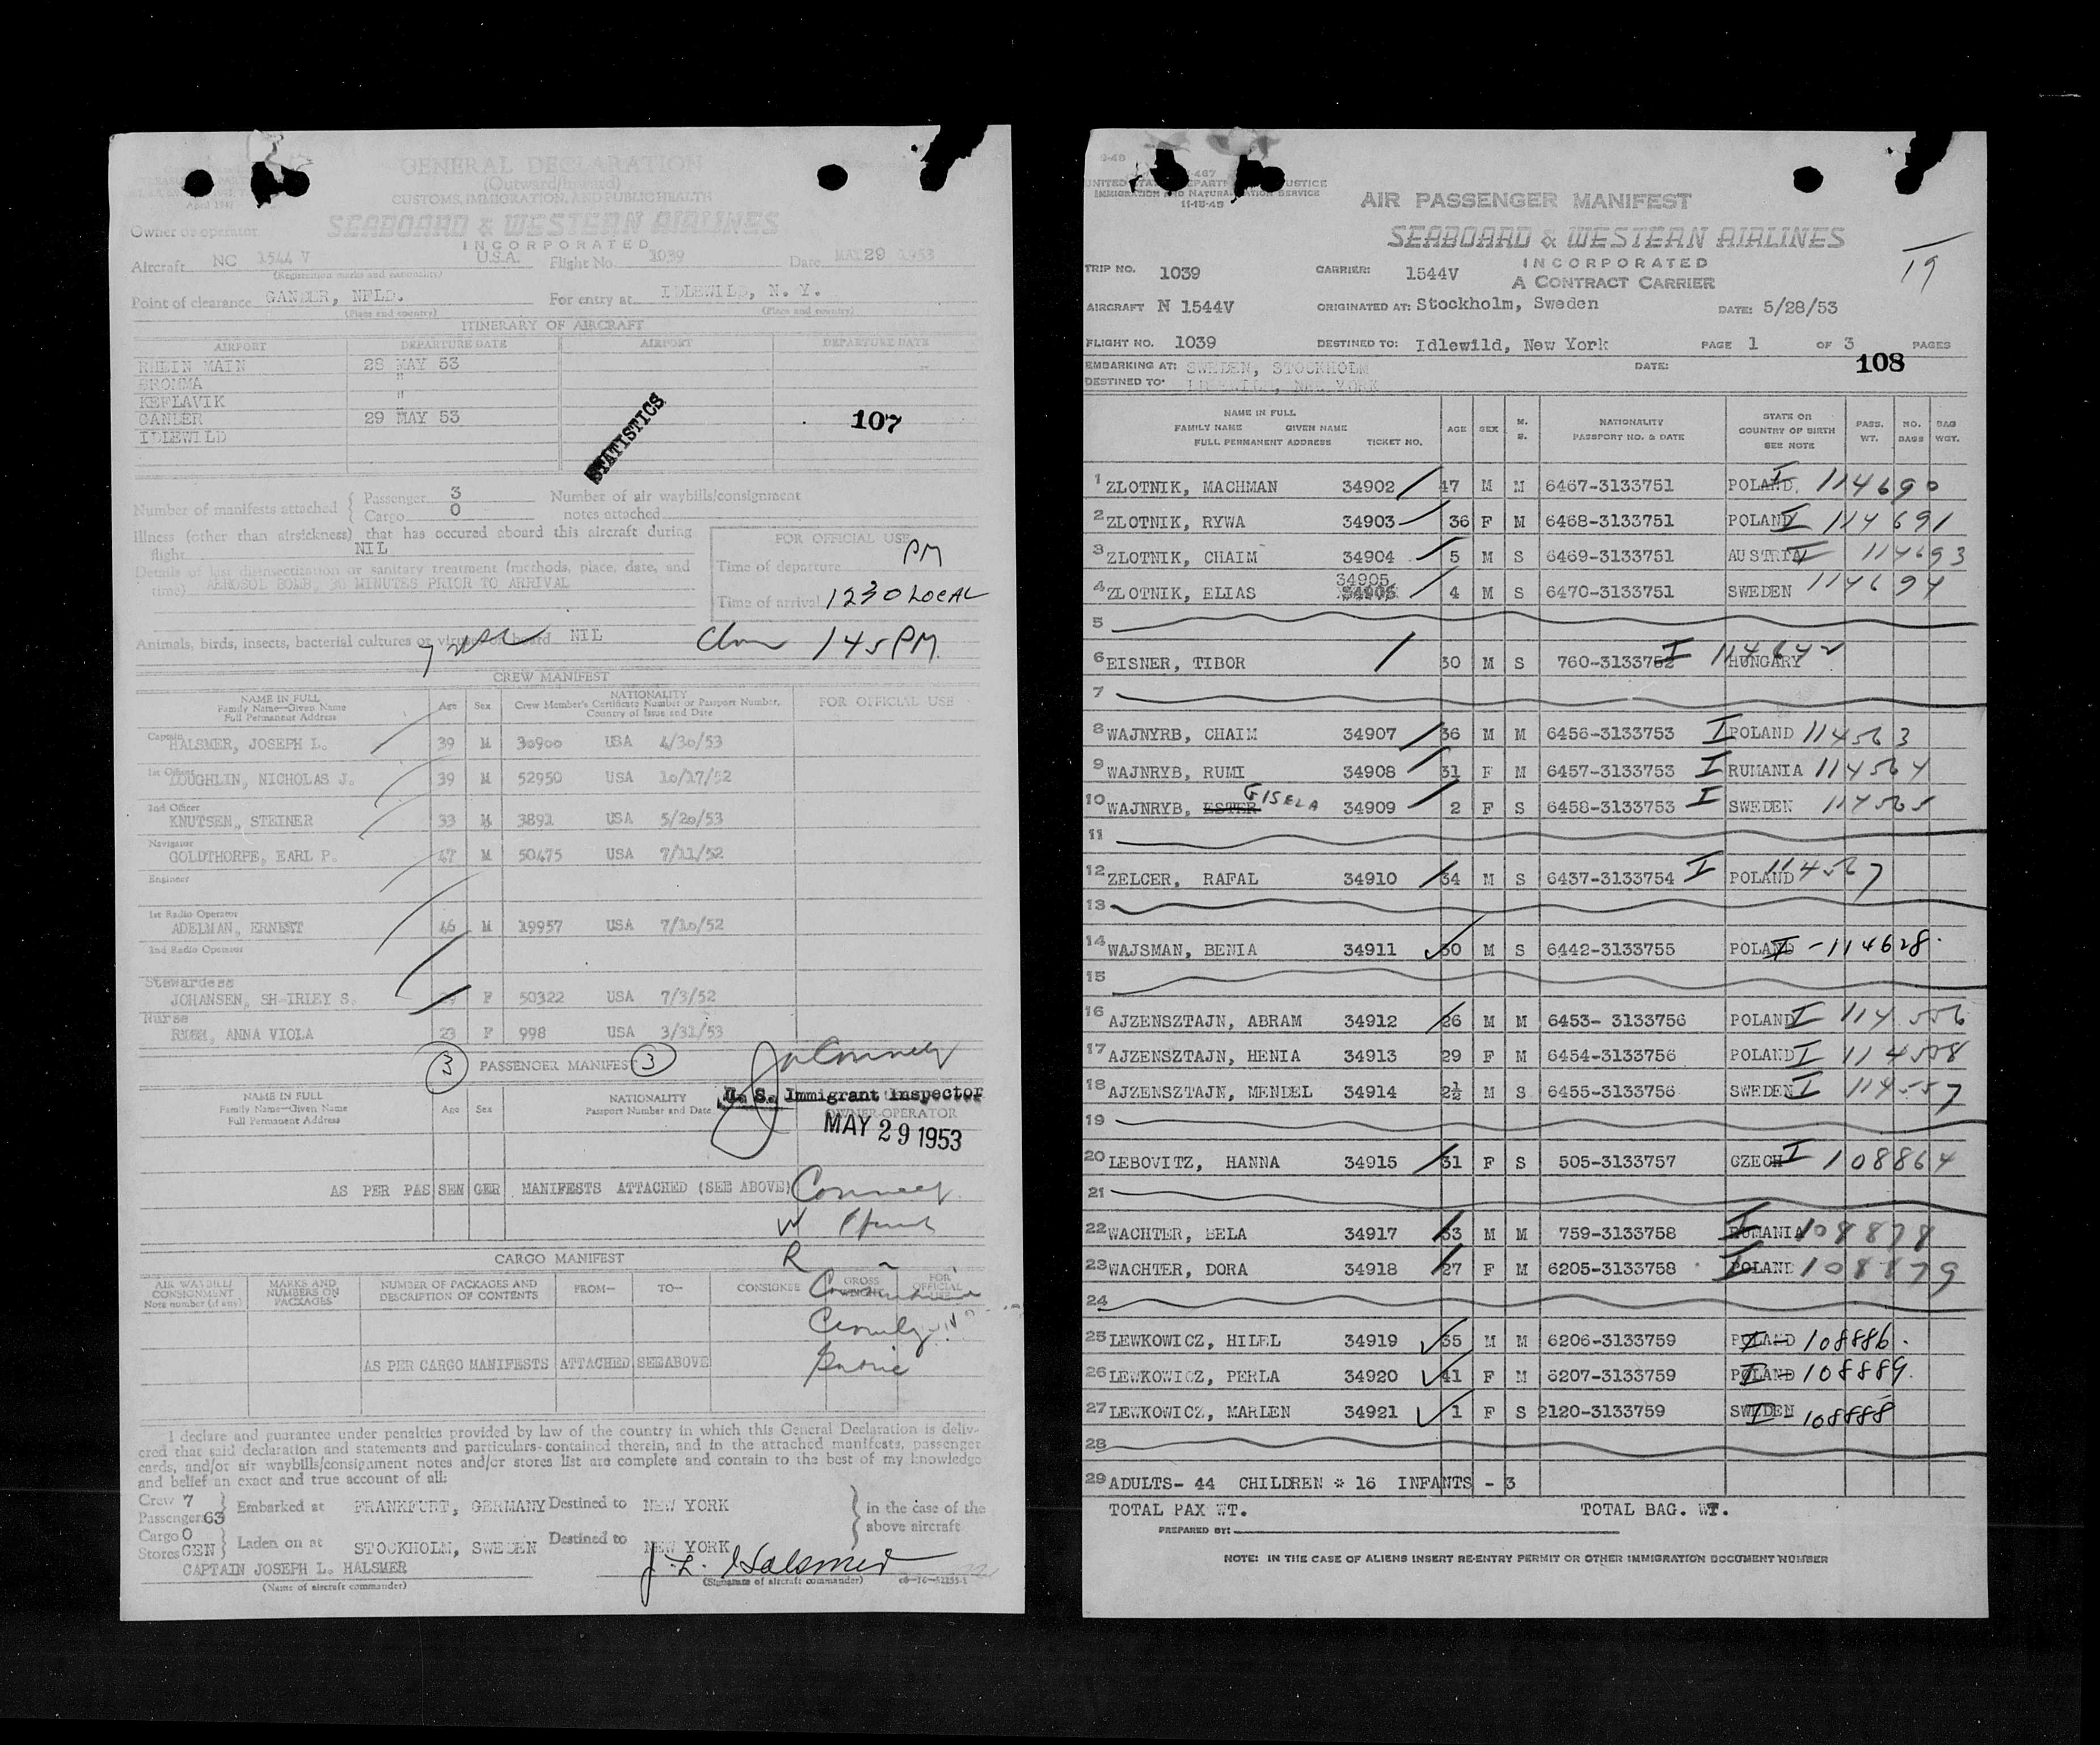 GENERAL DECLARATION
(Outward/Inward)
CUSTOMS, IMMIGRATION, AND PUBLIC HEALTH
April 1948
Owner or operator SEABOARD & WESTERN AIRLINES
INCORPORATED
Aircraft NC 1544 V U.S.A. Flight No. 1039 Date MAY 29 1953
(Registration marks and nationality)
Point of clearance GANDER, NFLD. For entry at IDLEWILD, N. Y.
(Place and country) (Place and country)
ITINERARY OF AIRCRAFT
AIRPORT DEPARTURE DATE AIRPORT DEPARTURE DATE
RHEIN MAIN 28 MAY 53
BROMMA "
KEFLAVIK "
GANDER 29 MAY 53
IDLEWILD
STATISTICS
107
Number of manifests attached { Passenger 3 Number of air waybills/consignment
Cargo 0 notes attached
Illness (other than airsickness) that has occured aboard this aircraft during
flight NIL
Details of last disinsectization or sanitary treatment (methods, place, date, and
time) AEROSOL BOMB, 30 MINUTES PRIOR TO ARRIVAL
FOR OFFICIAL USE
Time of departure PM
Time of arrival 1230 LOCAL
Animals, birds, insects, bacterial cultures or virus on board NIL
145 PM
CREW MANIFEST
NAME IN FULL
Family Name—Given Name
Full Permanent Address
Age Sex
NATIONALITY
Crew Member's Certificate Number or Passport Number,
Country of Issue and Date
FOR OFFICIAL USE
Captain
HALSMER, JOSEPH L. 39 M 30900 USA 4/30/53
1st Officer
LOUGHLIN, NICHOLAS J. 39 M 52950 USA 10/17/52
2nd Officer
KNUTSEN, STEINER 33 M 3892 USA 5/20/53
Navigator
GOLDTHORPE, EARL P. 47 M 50475 USA 7/11/52
Engineer
1st Radio Operator
ADELMAN, ERNEST 46 M 19957 USA 7/10/52
2nd Radio Operator
Stewardess
JOHANSEN, SHIRLEY S. 29 F 50322 USA 7/3/52
Nurse
ANNA VIOLA 23 F 998 USA 3/31/53
3 PASSENGER MANIFEST 3
NAME IN FULL
Family Name—Given Name
Full Permanent Address
Age Sex
NATIONALITY
Passport Number and Date
U. S. Immigrant Inspector
OWNER-OPERATOR
MAY 29 1953
AS PER PASSENGER MANIFESTS ATTACHED (SEE ABOVE)
CARGO MANIFEST
AIR WAYBILL/
CONSIGNMENT
Note number (if any)
MARKS AND
NUMBERS ON
PACKAGES
NUMBER OF PACKAGES AND
DESCRIPTION OF CONTENTS
FROM— TO— CONSIGNEE GROSS FOR
OFFICIAL
AS PER CARGO MANIFESTS ATTACHED SEE ABOVE
I declare and guarantee under penalties provided by law of the country in which this General Declaration is deliv-
ered that said declaration and statements and particulars contained therein, and in the attached manifests, passenger
cards, and/or air waybills/consignment notes and/or stores list are complete and contain to the best of my knowledge
and belief an exact and true account of all:
Crew 7
Passengers 63 } Embarked at FRANKFURT, GERMANY Destined to NEW YORK } in the case of the
above aircraft
Cargo 0
Stores GEN } Laden on at STOCKHOLM, SWEDEN Destined to NEW YORK
CAPTAIN JOSEPH L. HALSMER J. L. Halsmer
(Name of aircraft commander) (Signature of aircraft commander)
UNITED STATES DEPARTMENT OF JUSTICE
IMMIGRATION AND NATURALIZATION SERVICE
11-15-45
AIR PASSENGER MANIFEST
SEABOARD & WESTERN AIRLINES
INCORPORATED
A CONTRACT CARRIER
19
TRIP NO. 1039 CARRIER: 1544V
AIRCRAFT N 1544V ORIGINATED AT: Stockholm, Sweden DATE: 5/28/53
FLIGHT NO. 1039 DESTINED TO: Idlewild, New York PAGE 1 OF 3 PAGES
EMBARKING AT: SWEDEN, STOCKHOLM DATE: 108
DESTINED TO: IDLEWILD, NEW YORK
NAME IN FULL
FAMILY NAME GIVEN NAME
FULL PERMANENT ADDRESS TICKET NO.
AGE SEX M. S.
NATIONALITY
PASSPORT NO. & DATE
STATE OR
COUNTRY OF BIRTH
SEE NOTE
PASS. WT. NO. BAGS BAG WGT.
1 ZLOTNIK, MACHMAN 34902 47 M M 6467-3133751 POLAND I 114690
2 ZLOTNIK, RYWA 34903 36 F M 6468-3133751 POLAND I 114691
3 ZLOTNIK, CHAIM 34904 5 M S 6469-3133751 AUSTRIA I 114693
4 ZLOTNIK, ELIAS 34905 4 M S 6470-3133751 SWEDEN 114694
5
6 EISNER, TIBOR 30 M S 760-3133752 I HUNGARY 114642
7
8 WAJNYRB, CHAIM 34907 36 M M 6456-3133753 I POLAND 114563
9 WAJNRYB, RUMI 34908 31 F M 6457-3133753 I RUMANIA 114564
10 WAJNRYB, ESTER GISELA 34909 2 F S 6458-3133753 I SWEDEN 114565
11
12 ZELCER, RAFAL 34910 34 M S 6437-3133754 I POLAND 114567
13
14 WAJSMAN, BENIA 34911 30 M S 6442-3133755 POLAND I - 114628
15
16 AJZENSZTAJN, ABRAM 34912 26 M M 6453- 3133756 POLAND I 114556
17 AJZENSZTAJN, HENIA 34913 29 F M 6454-3133756 POLAND I 114558
18 AJZENSZTAJN, MENDEL 34914 2½ M S 6455-3133756 SWEDEN I 114557
19
20 LEBOVITZ, HANNA 34915 31 F S 505-3133757 CZECH I 108864
21
22 WACHTER, BELA 34917 33 M M 759-3133758 I RUMANIA 108878
23 WACHTER, DORA 34918 27 F M 6205-3133758 I POLAND 108879
24
25 LEWKOWICZ, HILEL 34919 35 M M 6206-3133759 POLAND I - 108886
26 LEWKOWICZ, PERLA 34920 41 F M 6207-3133759 POLAND I - 108889
27 LEWKOWICZ, MARLEN 34921 1 F S 2120-3133759 SWEDEN I - 108888
28
29 ADULTS- 44 CHILDREN * 16 INFANTS - 3
TOTAL PAX WT. TOTAL BAG. WT.
PREPARED BY:
NOTE: IN THE CASE OF ALIENS INSERT RE-ENTRY PERMIT OR OTHER IMMIGRATION DOCUMENT NUMBER